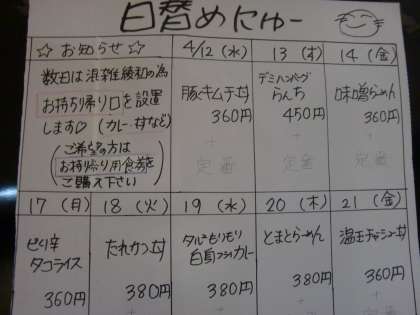 日替めにゅー
☆お知らせ☆
数日は混雑緩和の為
お持ち帰り口を設置
します♡(カレー、丼など)
(ご希望の方は
お持ち帰り用食券を
ご購入下さい)
4/12(水)
豚キムチ丼
360円
定番
13(木)
デミハンバーグ
らんち
450円
定番
14(金)
味噌らーめん
360円
定番
17(月)
ピリ辛
タコライス
360円
18(火)
たれかつ丼
380円
19(水)
タルタルもりもり
白身フライカレー
380円
20(木)
とまとらーめん
380円
21(金)
温玉チャシュー丼
360円